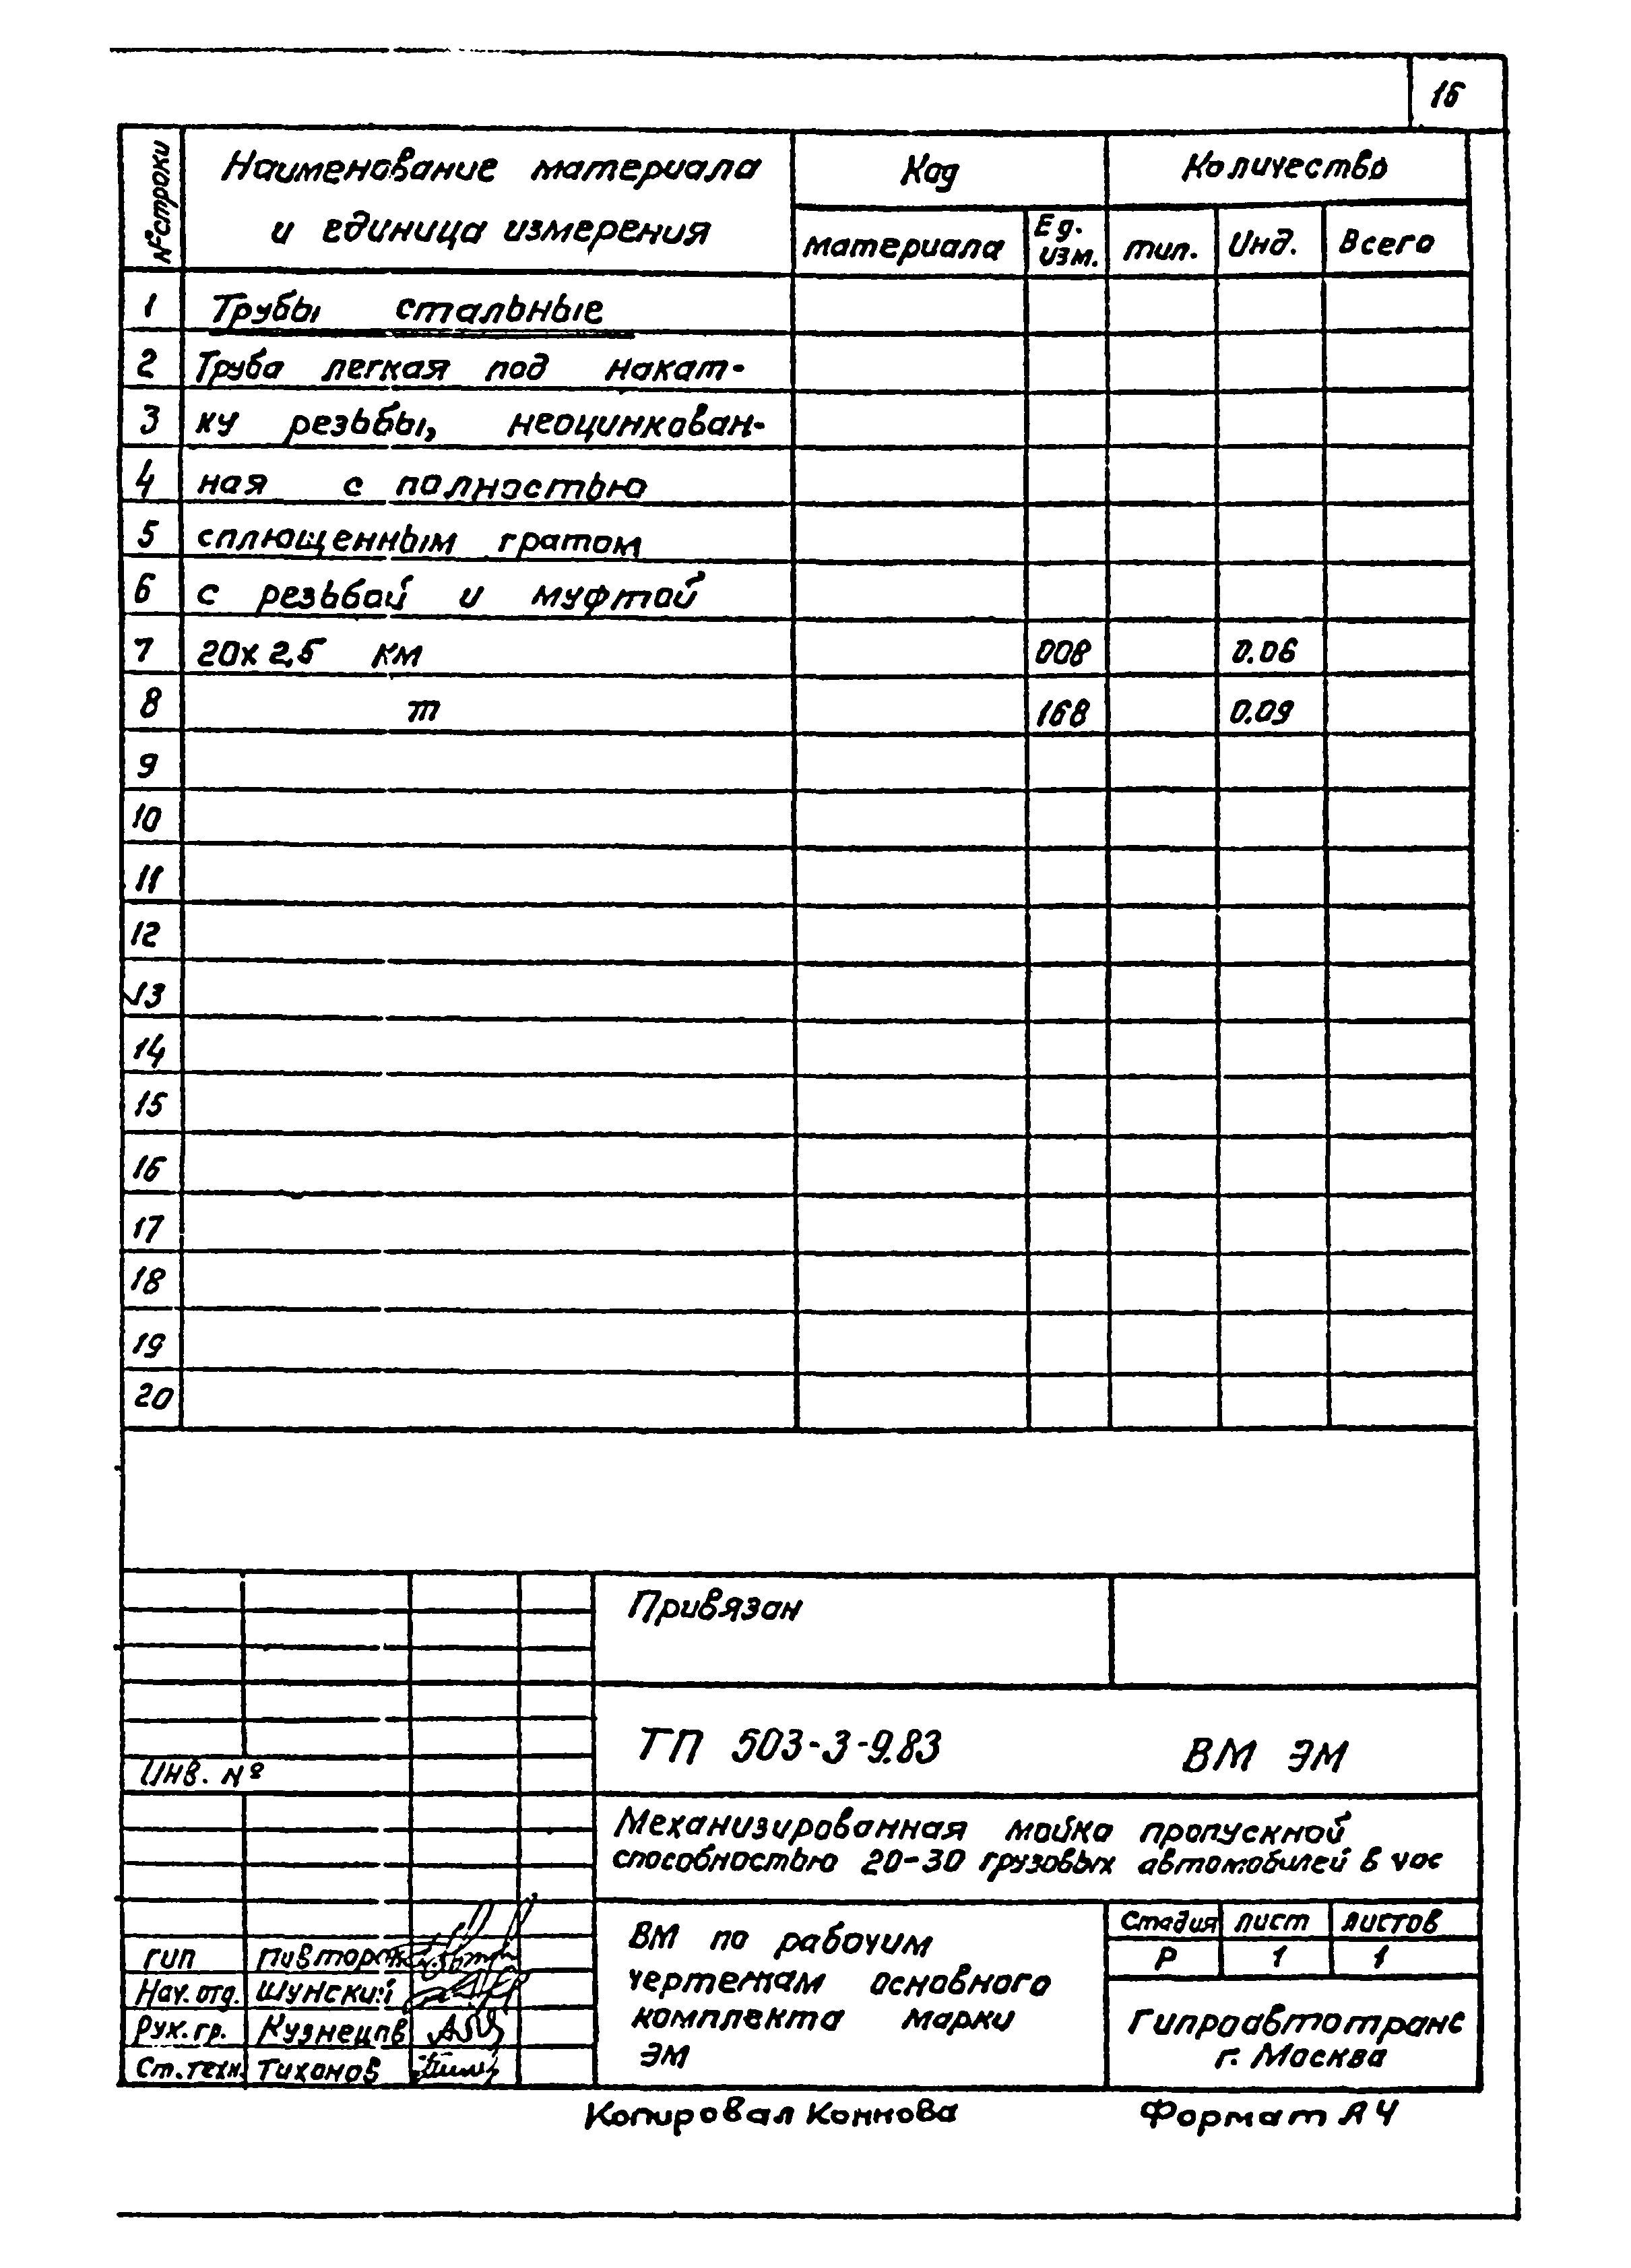 16
№ строки
Наименование материала
и единица измерения
Код
Количество
материала
Ед.
изм.
тип.
Инд.
Всего
1 Трубы стальные
2 Труба легкая под накат-
3 ку резьбы, неоцинкован-
4 ная с полностью
5 сплющенным гратом
6 с резьбой и муфтой
7 20х2,5 км 008 0.06
8 т 168 0.09
9
10
11
12
13
14
15
16
17
18
19
20
Привязан
ТП 503-3-9.83 ВМ ЭМ
Инв. №
Механизированная мойка пропускной
способностью 20-30 грузовых автомобилей в час
ВМ по рабочим
чертежам основного
комплекта марки
ЭМ
Стадия лист листов
Р 1 1
Гипроавтотранс
г. Москва
гип
Нач. отд. Шунский
Рук. гр. Кузнецов
Ст. техн. Тихонов
Копировал Коннова Формат А4